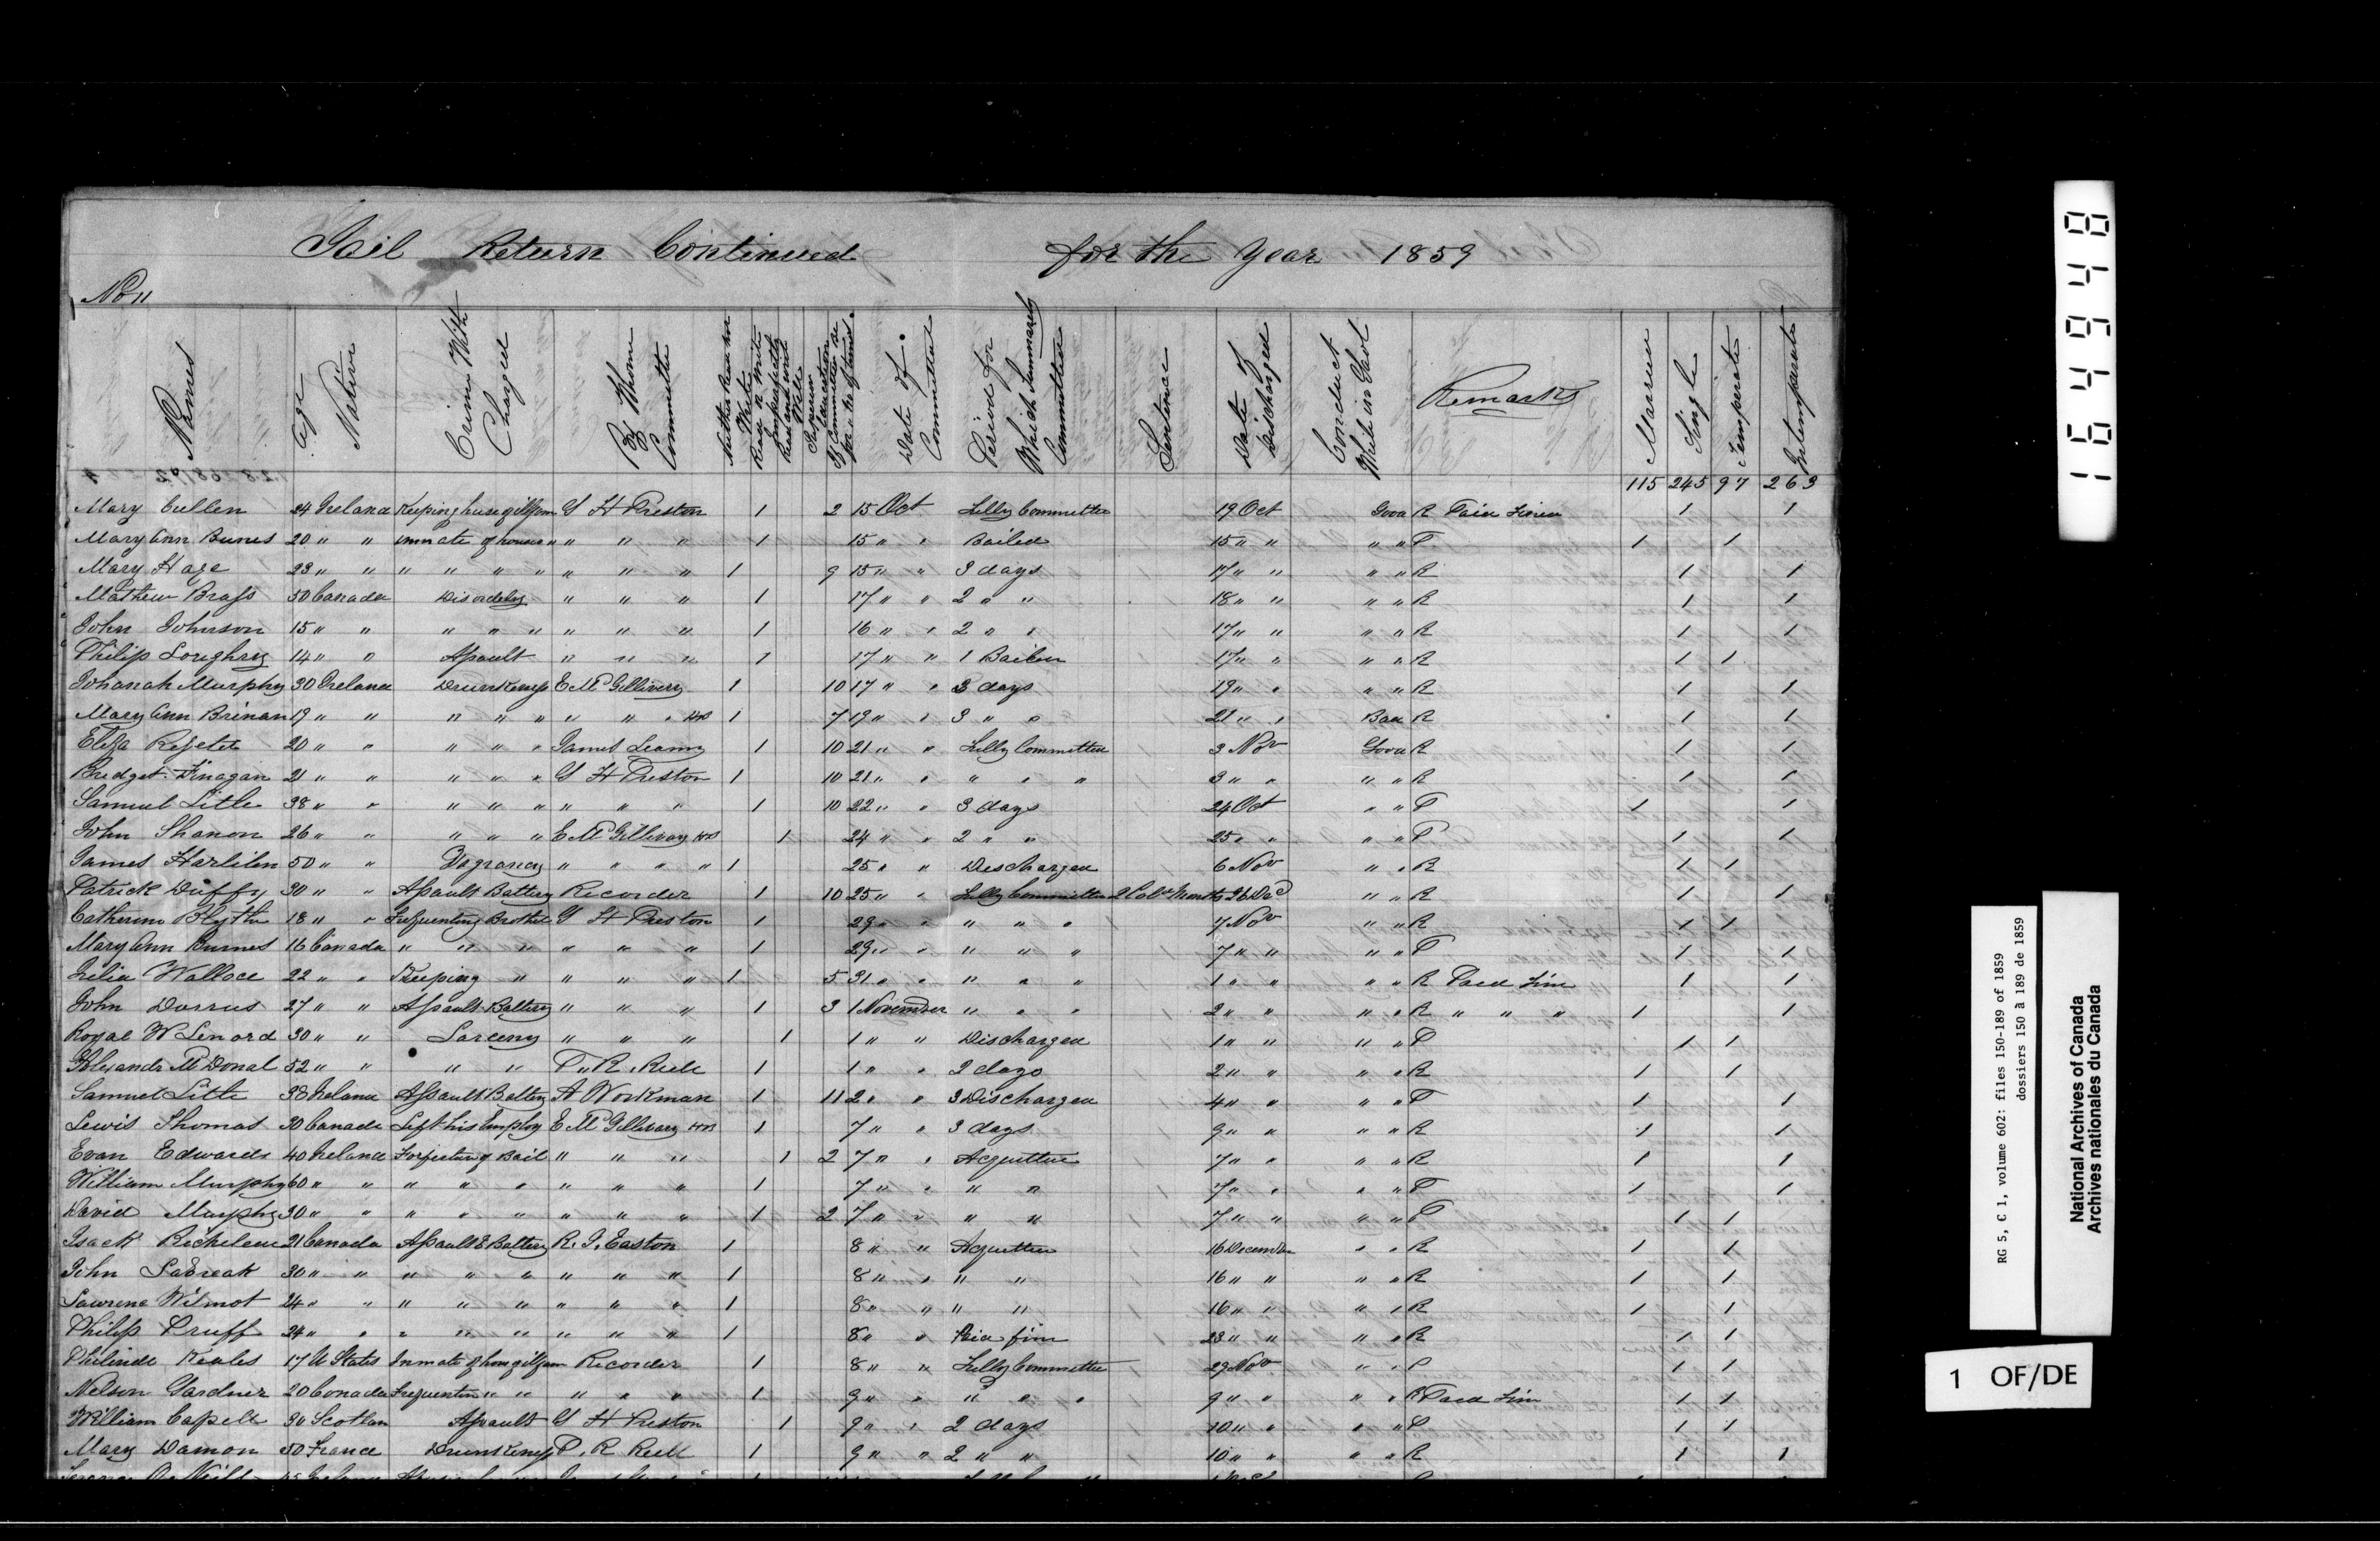 Jail Return Continued for the Year 1859
No 11
Names | Age | Native | Crime With Charged | By Whome Committe | Neither Read nor Write | Read or Write Imperfectly | Read and write Well | Superior Education | If Committed before & No of times. | Date of Committed | Period for Which Summarely Committed | Sentence | Date of Discharged | Conduct While in Gaol | Remarks | Married | Single | Temperate | Intemperate
115 245 97 263
Mary Cullen 24 Ireland Keeping house of illfam G H Preston 1 2 15 Oct Fully Committed 19 Oct Good R Paid Fined 1 1
Mary Ann Burns 20 " " inmate of house " " " " 1 15 " " Bailed 15 " " " " P 1 1
Mary Hage 23 " " " " " " " " " 1 9 15 " " 3 days 17 " " " " R 1 1
Mathew Brass 50 Canada Disordely " " " 1 17 " " 2 " " 18 " " " " R 1 1
John Johnson 15 " " " " " " " " 1 16 " " 2 " " 17 " " " " R 1 1
Philip Loughry 14 " " Assault " " " 1 17 " " 1 Bailed 17 " " " " R 1 1
Johanah Murphy 30 Ireland Drunkenss E McGillivery 1 10 17 " " 3 days 19 " " " " R 1 1
Mary Ann Brinan 19 " " " " " " " " 1 7 19 " " 3 " " 21 " " Bad R 1 1
Eliza 20 " " " " " James 1 10 21 " " Fully Committed 3 Nov Good R 1 1
Bredget Finagan 21 " " " " " G H Preston 1 10 21 " " " " " 3 " " " " R 1 1
Samuel Litle 38 " " " " " " " " 1 10 22 " " 3 days 24 Oct " " P 1 1
John Shanon 26 " " " " " E McGillivray 1 24 " " 2 " " 25 " " " " P 1 1
James Harlilen 50 " " Vagrancy " " " " 1 25 " " Descharged 6 Nov " " R 1 1
Patrick Duffy 30 " " Assault Battery Recorder 1 10 25 " " Fully Committed 2 Months 26 Dec " " R 1 1
Catherine Blythe 18 " " Frequenting Brothel G H Preston 1 29 " " " " " 7 Nov " " R 1 1
Mary Ann Burnes 16 Canada " " " " " " 1 29 " " " " " 7 " " " " P 1 1
Julia Wallace 22 " " Keeping " " " " 1 5 31 " " " " " 1 " " " " R Paid Fine 1 1
John Dorrus 27 " " Assault Battery " " " 1 3 1 November " " " 2 " " " " R " " " 1 1
Royal W Lenord 30 " " Larceny " " " 1 1 " " Discharged 1 " " " " P 1 1
Alexandr McDonal 52 " " " " P. R. 1 1 " " 2 days 2 " " " " R 1 1
Samuel Litle 38 Ireland Assault Battery A Workman 1 11 2 " " 3 Discharged 4 " " " " P 1 1
Lewis Thomas 30 Canada Left his Employ E McGillivary 1 7 " " 3 days 9 " " " " R 1 1
Evan Edwards 40 Ireland Forfecture of Bail " " " 1 2 7 " " Acquetted 7 " " " " R 1 1
William Murphy 60 " " " " " " " " 1 7 " " " " 7 " " " " P 1 1
David Murphy 30 " " " " " " " " 1 2 7 " " " " 7 " " " " P 1 1
Isack Richeleeu 21 Canada Assault & Battery R. I. Easton 1 8 " " Acquetted 16 December " " R 1 1
John 30 " " " " " " " " 1 8 " " " " 16 " " " " R 1 1
Lawrenc Wilmot 24 " " " " " " " " 1 8 " " " " 16 " " " " R 1 1
Philip Pruff 24 " " " " " " " " 1 8 " " Paid fine 23 " " " " R 1 1
Philinde 17 U States Inmate of hous of ilfam Recorder 1 8 " " Fully Committed 29 Nov " " P 1 1
Nelson Gardner 20 Canada Frequentin " " " " " 1 9 " " " " " 9 " " " " R Paid Fine 1 1
William Capell 30 Scotlan Assault G H Preston 1 9 " " 2 days 10 " " " " P 1 1
Mary Damon 50 France Drunkenss P. R. 1 9 " " 2 " " 10 " " " " R 1 1
164948
RG 5, C 1, volume 602: files 150-189 of 1859
dossiers 150 à 189 de 1859
National Archives of Canada
Archives nationales du Canada
1 OF/DE